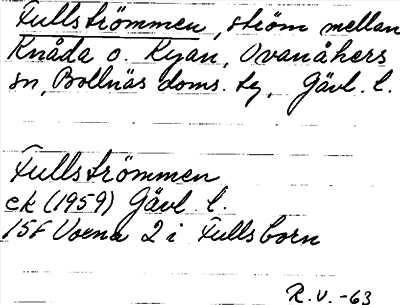 Fullströmmen, ström mellan
Knåda o. Kyan, Ovanåkers
sn, Bollnäs doms. tg, Gävl. l.
Fullströmmen
ek (1959) Gävl. l.
15F Voxna 2 i Fullsborn
R.V. -63